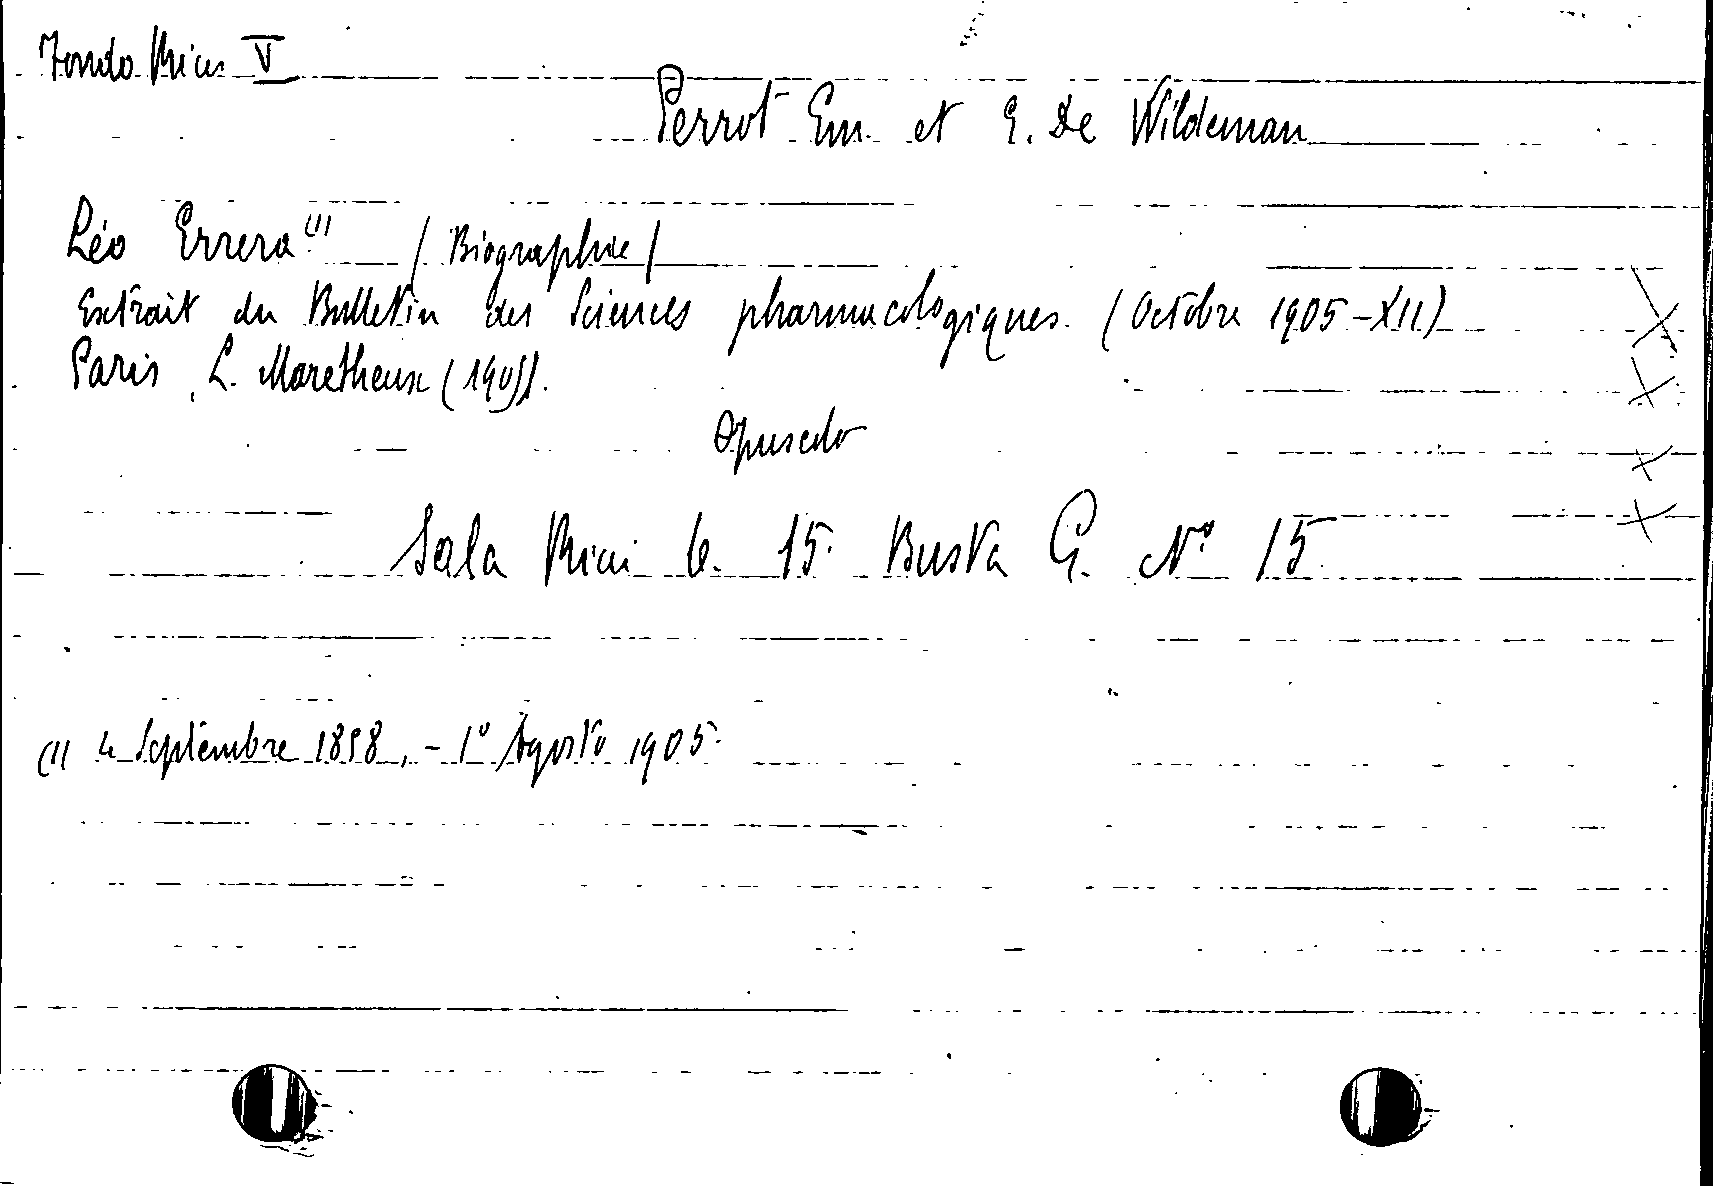 Fondo Mieli V
Perrot Em. et E. De Wildeman
Léo Errera (1) / Biographie /
Extrait du Bulletin des Sciences pharmacologiques. (Octobre 1905 - XII)
Paris, L. Maretheux (1905).
Opuscolo
Sala Mieli b. 15. Busta G. N° 15
(1) 4 Septembre 1858, - 1° Agosto 1905.